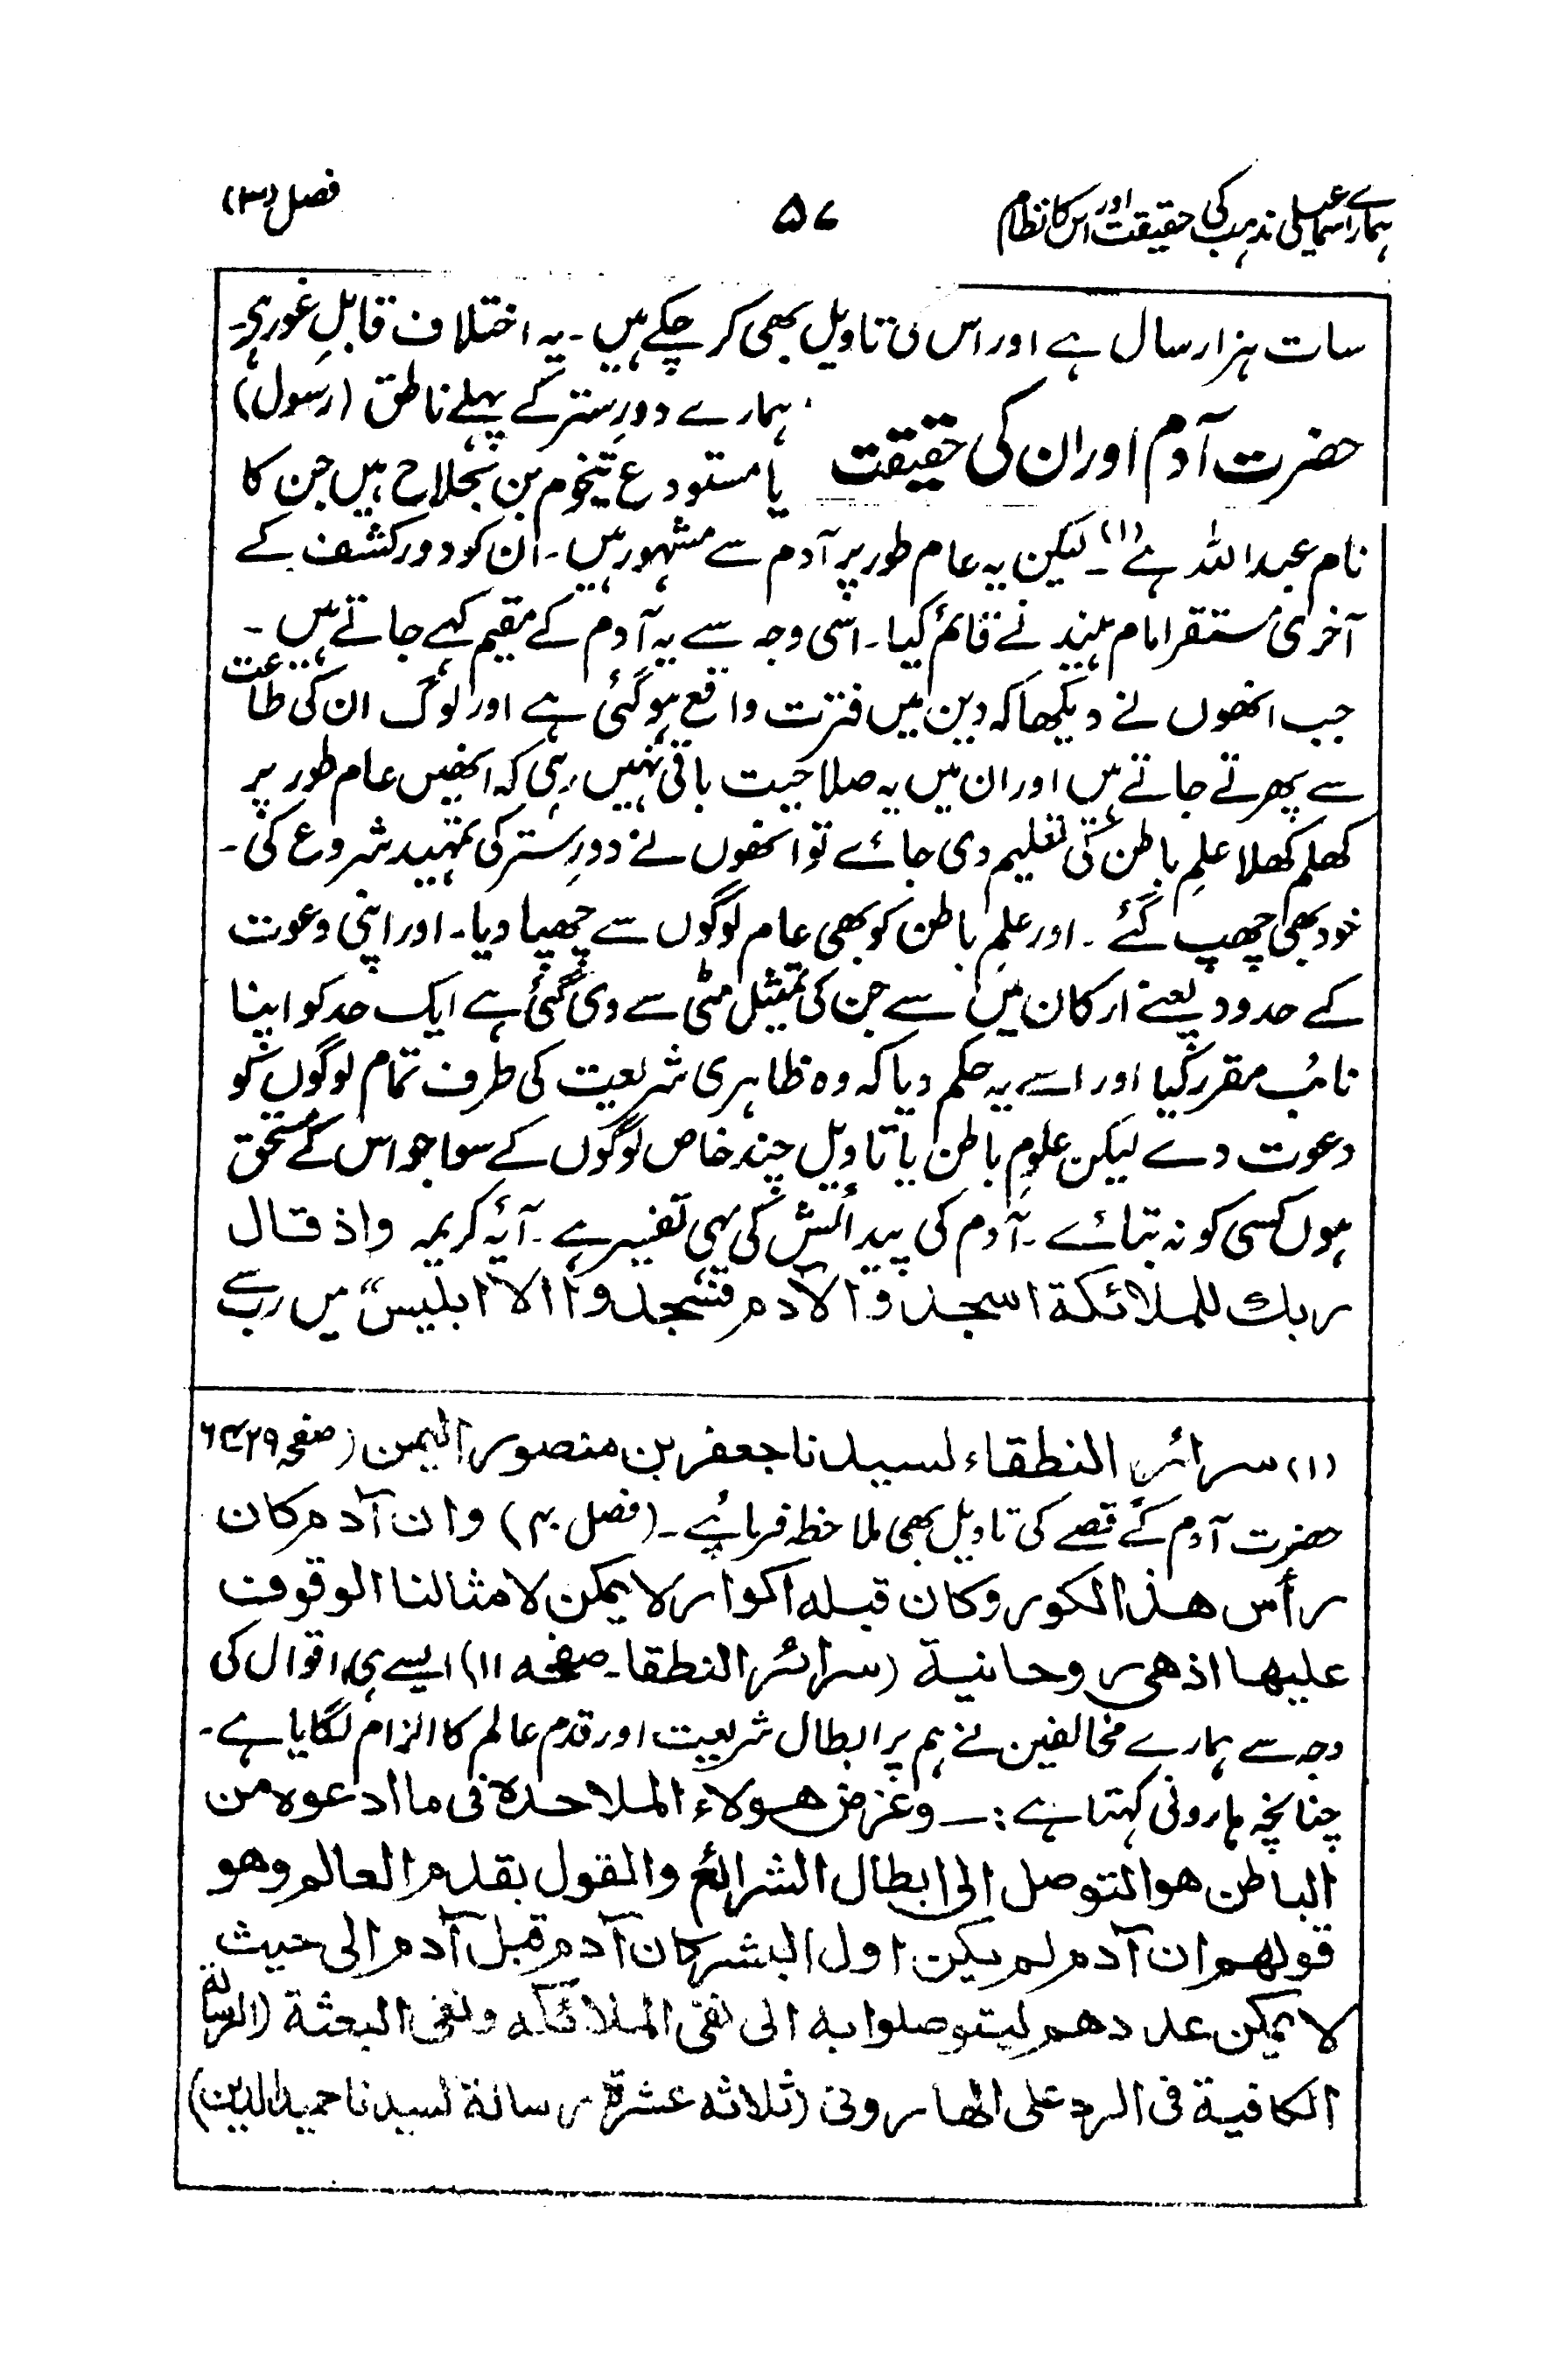 ہمارے اسماعیلی مذہب کی حقیقت اور اس کا نظام
۵۷
فصل (۳)
سات ہزار سال ہے اور اس کی تاویل بھی کر چکے ہیں۔ یہ اختلاف قابلِ غور ہے۔
حضرت آدم اور ان کی حقیقت
ہمارے دورِ ستر کے پہلے ناطق (رسول)
یا مستودع تیخوم بن بجلاح ہیں جن کا
نام عبداللہ ہے (۱)۔ لیکن یہ عام طور پر آدم سے مشہور ہیں۔ ان کو دور کشف کے
آخری مستقر امام ہنید نے قائم کیا۔ اسی وجہ سے یہ آدم کے مقیم کہے جاتے ہیں۔
جب انھوں نے دیکھا کہ دین میں فترت واقع ہو گئی ہے اور لوگ ان کی طاعت
سے پھرتے جاتے ہیں اور ان میں یہ صلاحیت باقی نہیں رہی کہ انھیں عام طور پر
کھلم کھلا علمِ باطن کی تعلیم دی جائے تو انھوں نے دورِ ستر کی تمہید شروع کی۔
خود بھی چھپ گئے۔ اور علمِ باطن کو بھی عام لوگوں سے چھپا دیا۔ اور اپنی دعوت
کے حدود یعنے ارکان میں سے جن کی تمثیل مٹی سے دی گئی ہے ایک حد کو اپنا
نائب مقرر کیا اور اسے یہ حکم دیا کہ وہ ظاہری شریعت کی طرف تمام لوگوں کو
دعوت دے لیکن علومِ باطن یا تاویل چند خاص لوگوں کے سوا جو اس کے مستحق
ہوں کسی کو نہ بتائے۔ آدم کی پیدائش کی یہی تفسیر ہے۔ آیۂ کریمہ واذ قال
ربك للملائكة اسجدوا لآدم فسجدوا الا ابليس“ میں رب سے
(۱) سرائر النطقاء لسیدنا جعفر بن منصور الیمن (صفحہ ۲۹
حضرت آدم کے قصے کی تاویل بھی ملاحظہ فرمائیے۔ (فصل ۴۰) وان آدم كان
رأس هذا الكور وكان قبله اكوار لا يمكن لامثالنا الوقوف
عليها اذ هي روحانية (سرائر النطقا۔ صفحہ ۱۱) ایسے ہی اقوال کی
وجہ سے ہمارے مخالفین نے ہم پر ابطال شریعت اور قدم عالم کا الزام لگایا ہے۔
چنانچہ ہارونی کہتا ہے :۔ وغرض هولاء الملاحدة فى ما ادعوه من
الباطن هو التوصل الى ابطال الشرائع والقول بقدم العالم وهو
قولهم ان آدم لم يكن اول البشر كان آدم قبل آدم الى حيث
لا يمكن عددهم ليتوصلوا به الى نفى الملائكه ونفى البعثة (الرسالة
الكافية فى الرد على الهارونى (ثلاثه عشرة رسالة لسيدنا حميد الدين)